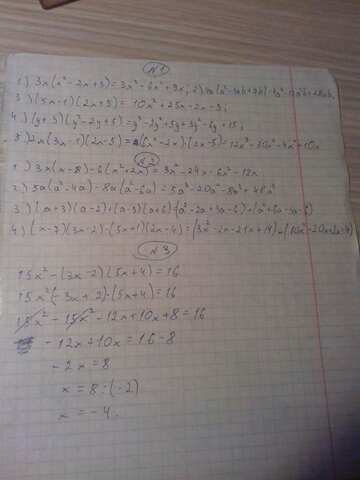 №1
1.) 3x(x²-2x+3)=3x³-6x²+9x;
3.) (5x-1)(2x+5)= 10x²+25x-2x-5;
4.) (y+3)(y²-2y+5)=y³-2y²+5y+3y²-6y+15;
5.) 2x(3x-1)(2x-5)=(6x²-2x)·(2x-5)=12x³-30x²-4x²+10x
№2
1.) 3x(x-8)-6(x²+2x)=3x²-24x-6x²-12x
2.) 5a(a²-4a)-8a(a²-6a)=5a³-20a²-8a³+48a²
3.) (a+3)(a-2)+(a-3)(a+6)=(a²-2a+3a-6)+(a²+6a-3a-18)
4.) (x-7)(3x-2)-(5x+1)(2x-4)=(3x²-2x-21x+14)-(10x²-20x+2x-4)
№3
15x²-(3x-2)(5x+4)=16
15x²(-3x+2)·(5x+4)=16
15x²-15x²-12x+10x+8=16
-12x+10x=16-8
-2x=8
x=8:(-2)
x=-4.